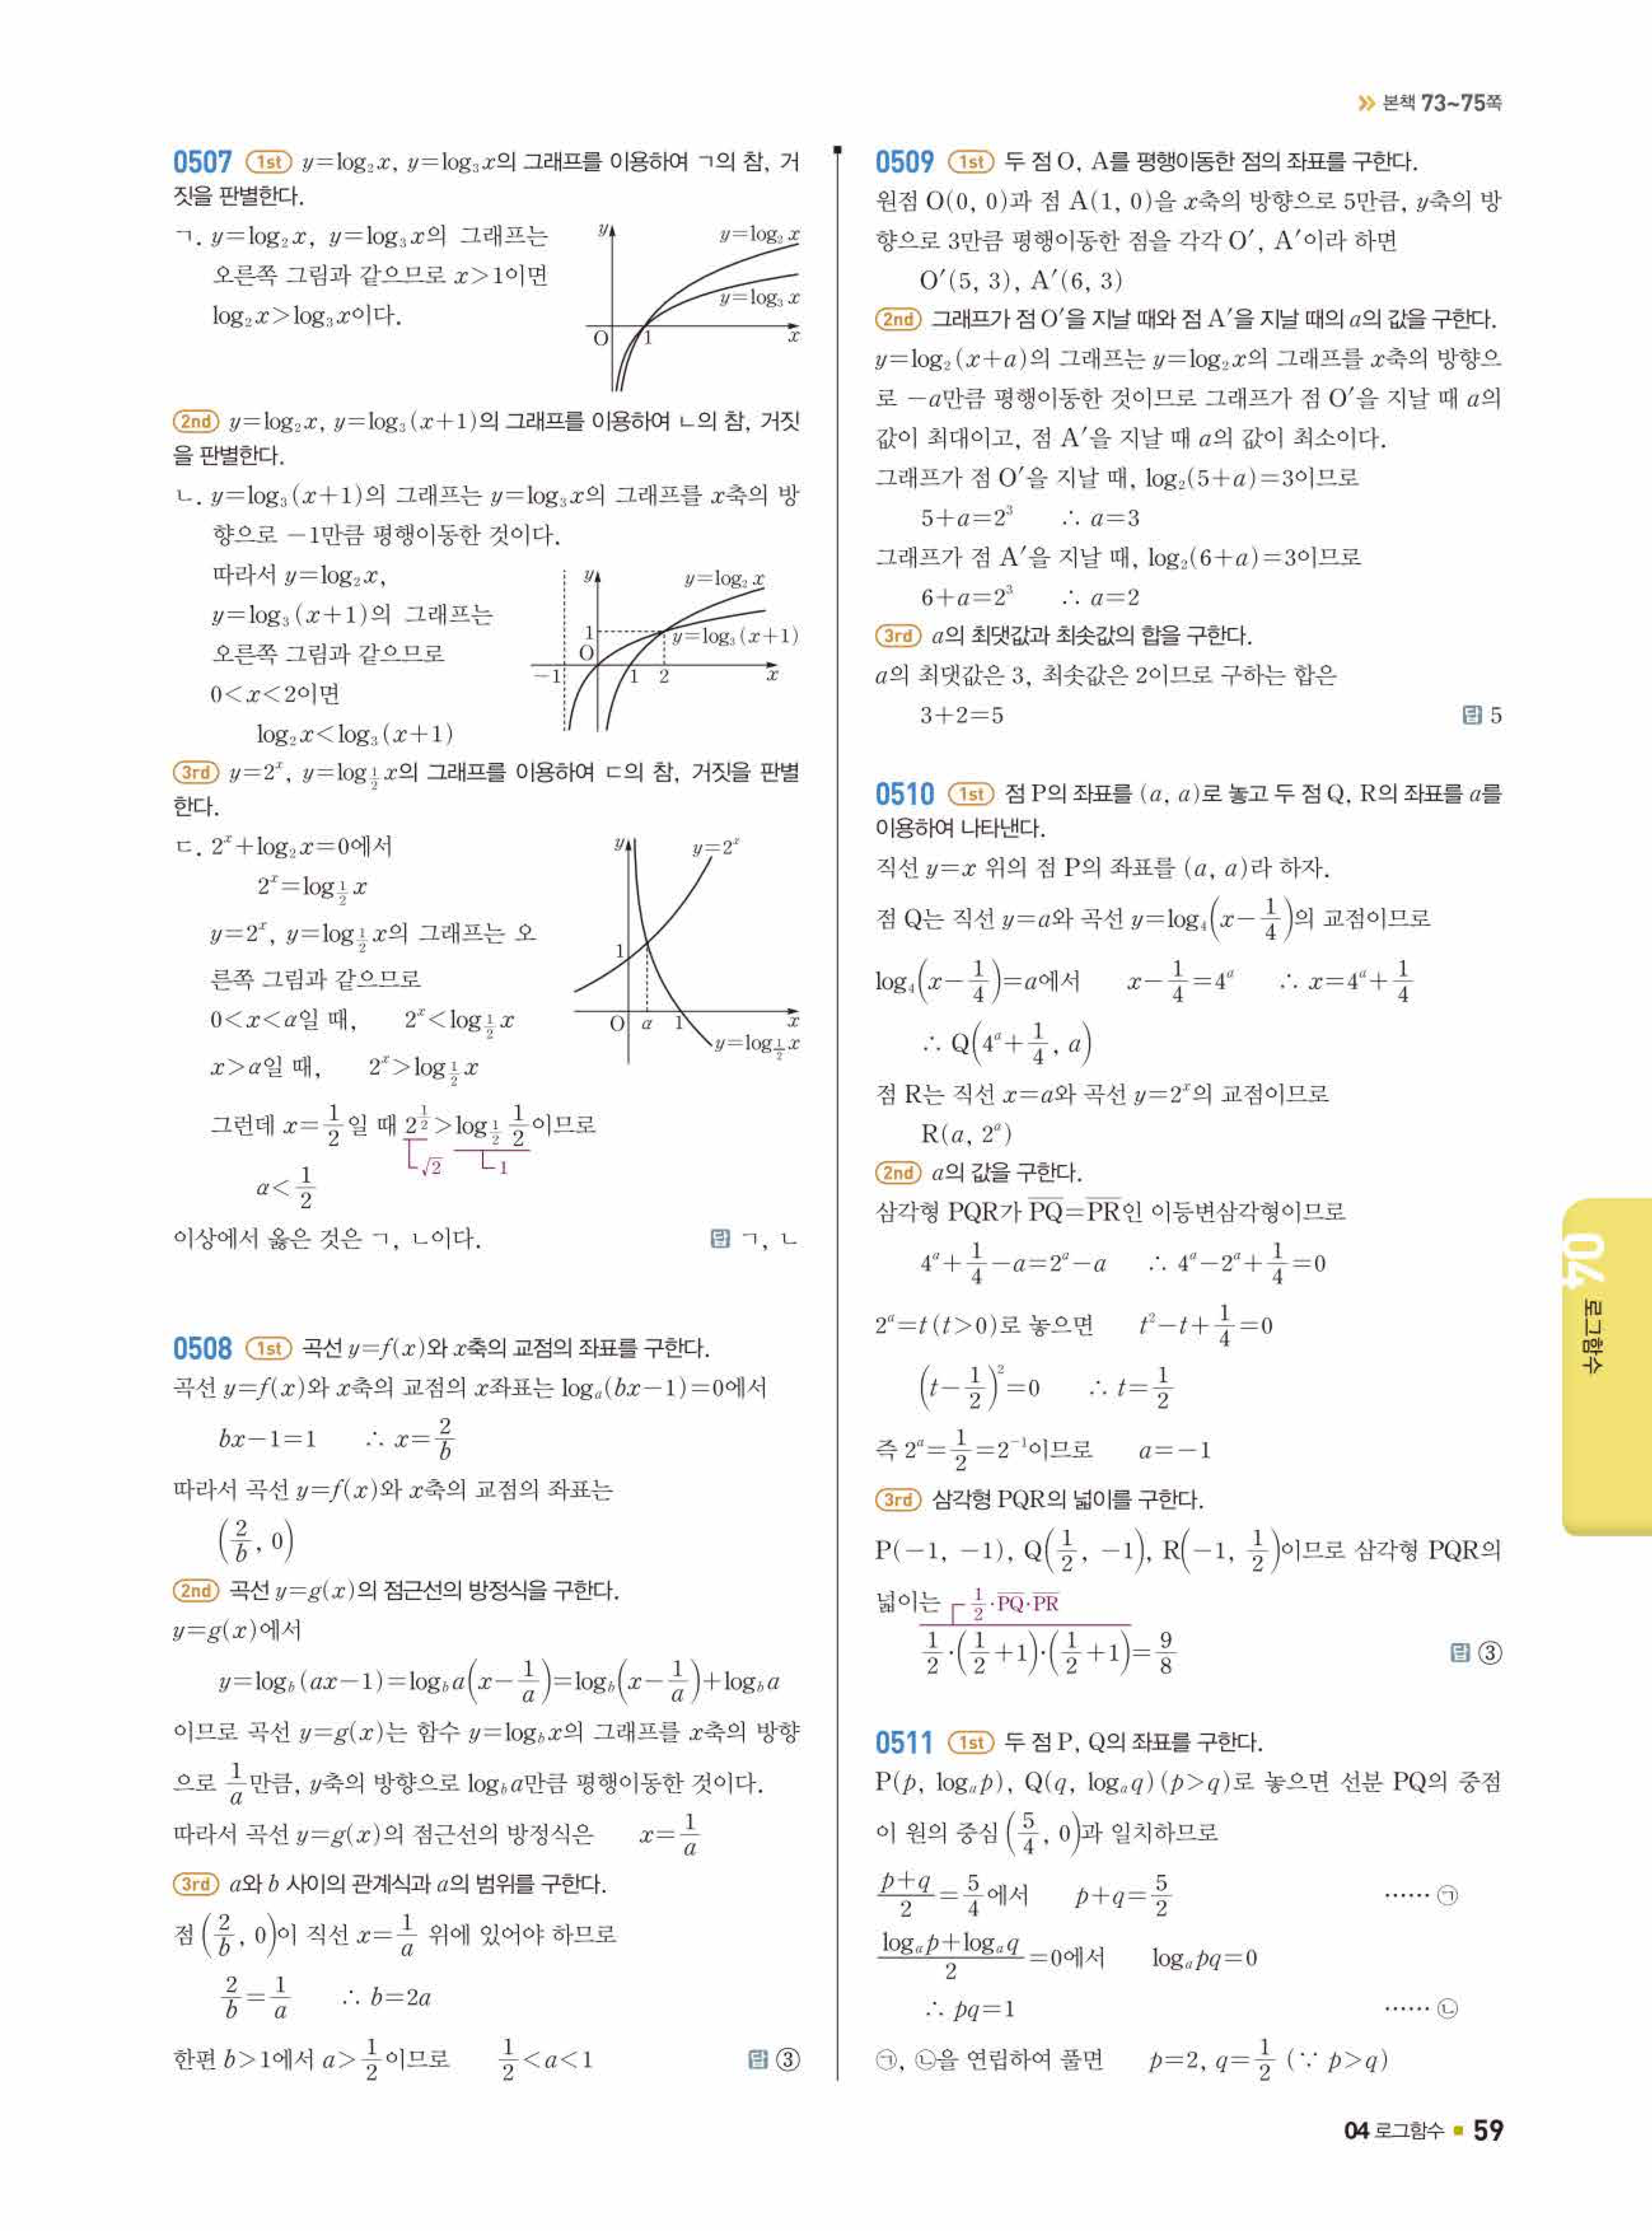 본책 73~75쪽
0507 1st y=log₂x, y=log₃x의 그래프를 이용하여 ㄱ의 참, 거
짓을 판별한다.
ㄱ. y=log₂x, y=log₃x의 그래프는
오른쪽 그림과 같으므로 x>1이면
log₂x>log₃x이다.
y
y=log₂x
y=log₃x
O
1
x
2nd y=log₂x, y=log₃(x+1)의 그래프를 이용하여 ㄴ의 참, 거짓
을 판별한다.
ㄴ. y=log₃(x+1)의 그래프는 y=log₃x의 그래프를 x축의 방
향으로 -1만큼 평행이동한 것이다.
따라서 y=log₂x,
y=log₃(x+1)의 그래프는
오른쪽 그림과 같으므로
0<x<2이면
log₂x<log₃(x+1)
y
y=log₂x
1
y=log₃(x+1)
O
-1
1 2
x
3rd y=2ˣ, y=log_{1/2}x의 그래프를 이용하여 ㄷ의 참, 거짓을 판별
한다.
ㄷ. 2ˣ+log₂x=0에서
2ˣ=log_{1/2}x
y=2ˣ, y=log_{1/2}x의 그래프는 오
른쪽 그림과 같으므로
0<x<α일 때, 2ˣ<log_{1/2}x
x>α일 때, 2ˣ>log_{1/2}x
y
y=2ˣ
1
O α 1 x
y=log_{1/2}x
그런데 x=1/2일 때 2^{1/2}>log_{1/2} 1/2이므로
√2 1
α<1/2
이상에서 옳은 것은 ㄱ, ㄴ이다. 답 ㄱ, ㄴ
0508 1st 곡선 y=f(x)와 x축의 교점의 좌표를 구한다.
곡선 y=f(x)와 x축의 교점의 x좌표는 logₐ(bx-1)=0에서
bx-1=1 ∴ x=2/b
따라서 곡선 y=f(x)와 x축의 교점의 좌표는
(2/b, 0)
2nd 곡선 y=g(x)의 점근선의 방정식을 구한다.
y=g(x)에서
y=log_b(ax-1)=log_b a(x-1/a)=log_b(x-1/a)+log_b a
이므로 곡선 y=g(x)는 함수 y=log_b x의 그래프를 x축의 방향
으로 1/a만큼, y축의 방향으로 log_b a만큼 평행이동한 것이다.
따라서 곡선 y=g(x)의 점근선의 방정식은 x=1/a
3rd a와 b 사이의 관계식과 a의 범위를 구한다.
점 (2/b, 0)이 직선 x=1/a 위에 있어야 하므로
2/b=1/a ∴ b=2a
한편 b>1에서 a>1/2이므로 1/2<a<1 답 ③
0509 1st 두 점 O, A를 평행이동한 점의 좌표를 구한다.
원점 O(0, 0)과 점 A(1, 0)을 x축의 방향으로 5만큼, y축의 방
향으로 3만큼 평행이동한 점을 각각 O′, A′이라 하면
O′(5, 3), A′(6, 3)
2nd 그래프가 점 O′을 지날 때와 점 A′을 지날 때의 a의 값을 구한다.
y=log₂(x+a)의 그래프는 y=log₂x의 그래프를 x축의 방향으
로 -a만큼 평행이동한 것이므로 그래프가 점 O′을 지날 때 a의
값이 최대이고, 점 A′을 지날 때 a의 값이 최소이다.
그래프가 점 O′을 지날 때, log₂(5+a)=3이므로
5+a=2³ ∴ a=3
그래프가 점 A′을 지날 때, log₂(6+a)=3이므로
6+a=2³ ∴ a=2
3rd a의 최댓값과 최솟값의 합을 구한다.
a의 최댓값은 3, 최솟값은 2이므로 구하는 합은
3+2=5 답 5
0510 1st 점 P의 좌표를 (a, a)로 놓고 두 점 Q, R의 좌표를 a를
이용하여 나타낸다.
직선 y=x 위의 점 P의 좌표를 (a, a)라 하자.
점 Q는 직선 y=a와 곡선 y=log₄(x-1/4)의 교점이므로
log₄(x-1/4)=a에서 x-1/4=4ᵃ ∴ x=4ᵃ+1/4
∴ Q(4ᵃ+1/4, a)
점 R는 직선 x=a와 곡선 y=2ˣ의 교점이므로
R(a, 2ᵃ)
2nd a의 값을 구한다.
삼각형 PQR가 P̅Q̅=P̅R̅인 이등변삼각형이므로
4ᵃ+1/4-a=2ᵃ-a ∴ 4ᵃ-2ᵃ+1/4=0
2ᵃ=t(t>0)로 놓으면 t²-t+1/4=0
(t-1/2)²=0 ∴ t=1/2
즉 2ᵃ=1/2=2⁻¹이므로 a=-1
3rd 삼각형 PQR의 넓이를 구한다.
P(-1, -1), Q(1/2, -1), R(-1, 1/2)이므로 삼각형 PQR의
넓이는 1/2·P̅Q̅·P̅R̅
1/2·(1/2+1)·(1/2+1)=9/8 답 ③
0511 1st 두 점 P, Q의 좌표를 구한다.
P(p, logₐp), Q(q, logₐq)(p>q)로 놓으면 선분 PQ의 중점
이 원의 중심 (5/4, 0)과 일치하므로
(p+q)/2=5/4에서 p+q=5/2 …… ㉠
(logₐp+logₐq)/2=0에서 logₐpq=0
∴ pq=1 …… ㉡
㉠, ㉡을 연립하여 풀면 p=2, q=1/2 (∵ p>q)
04 로그함수
04 로그함수 59